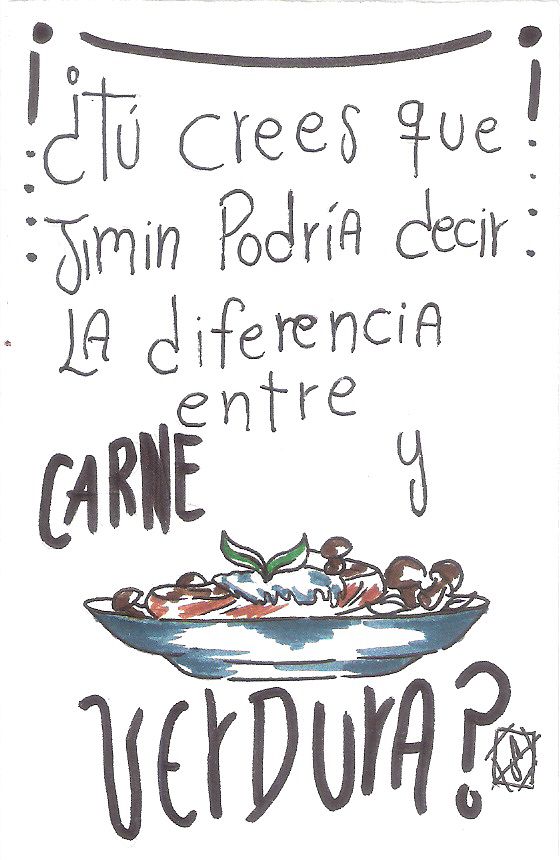 ¿Tú crees que
Jimin Podría decir
LA diferencia
entre
CARNE y
Verdura?